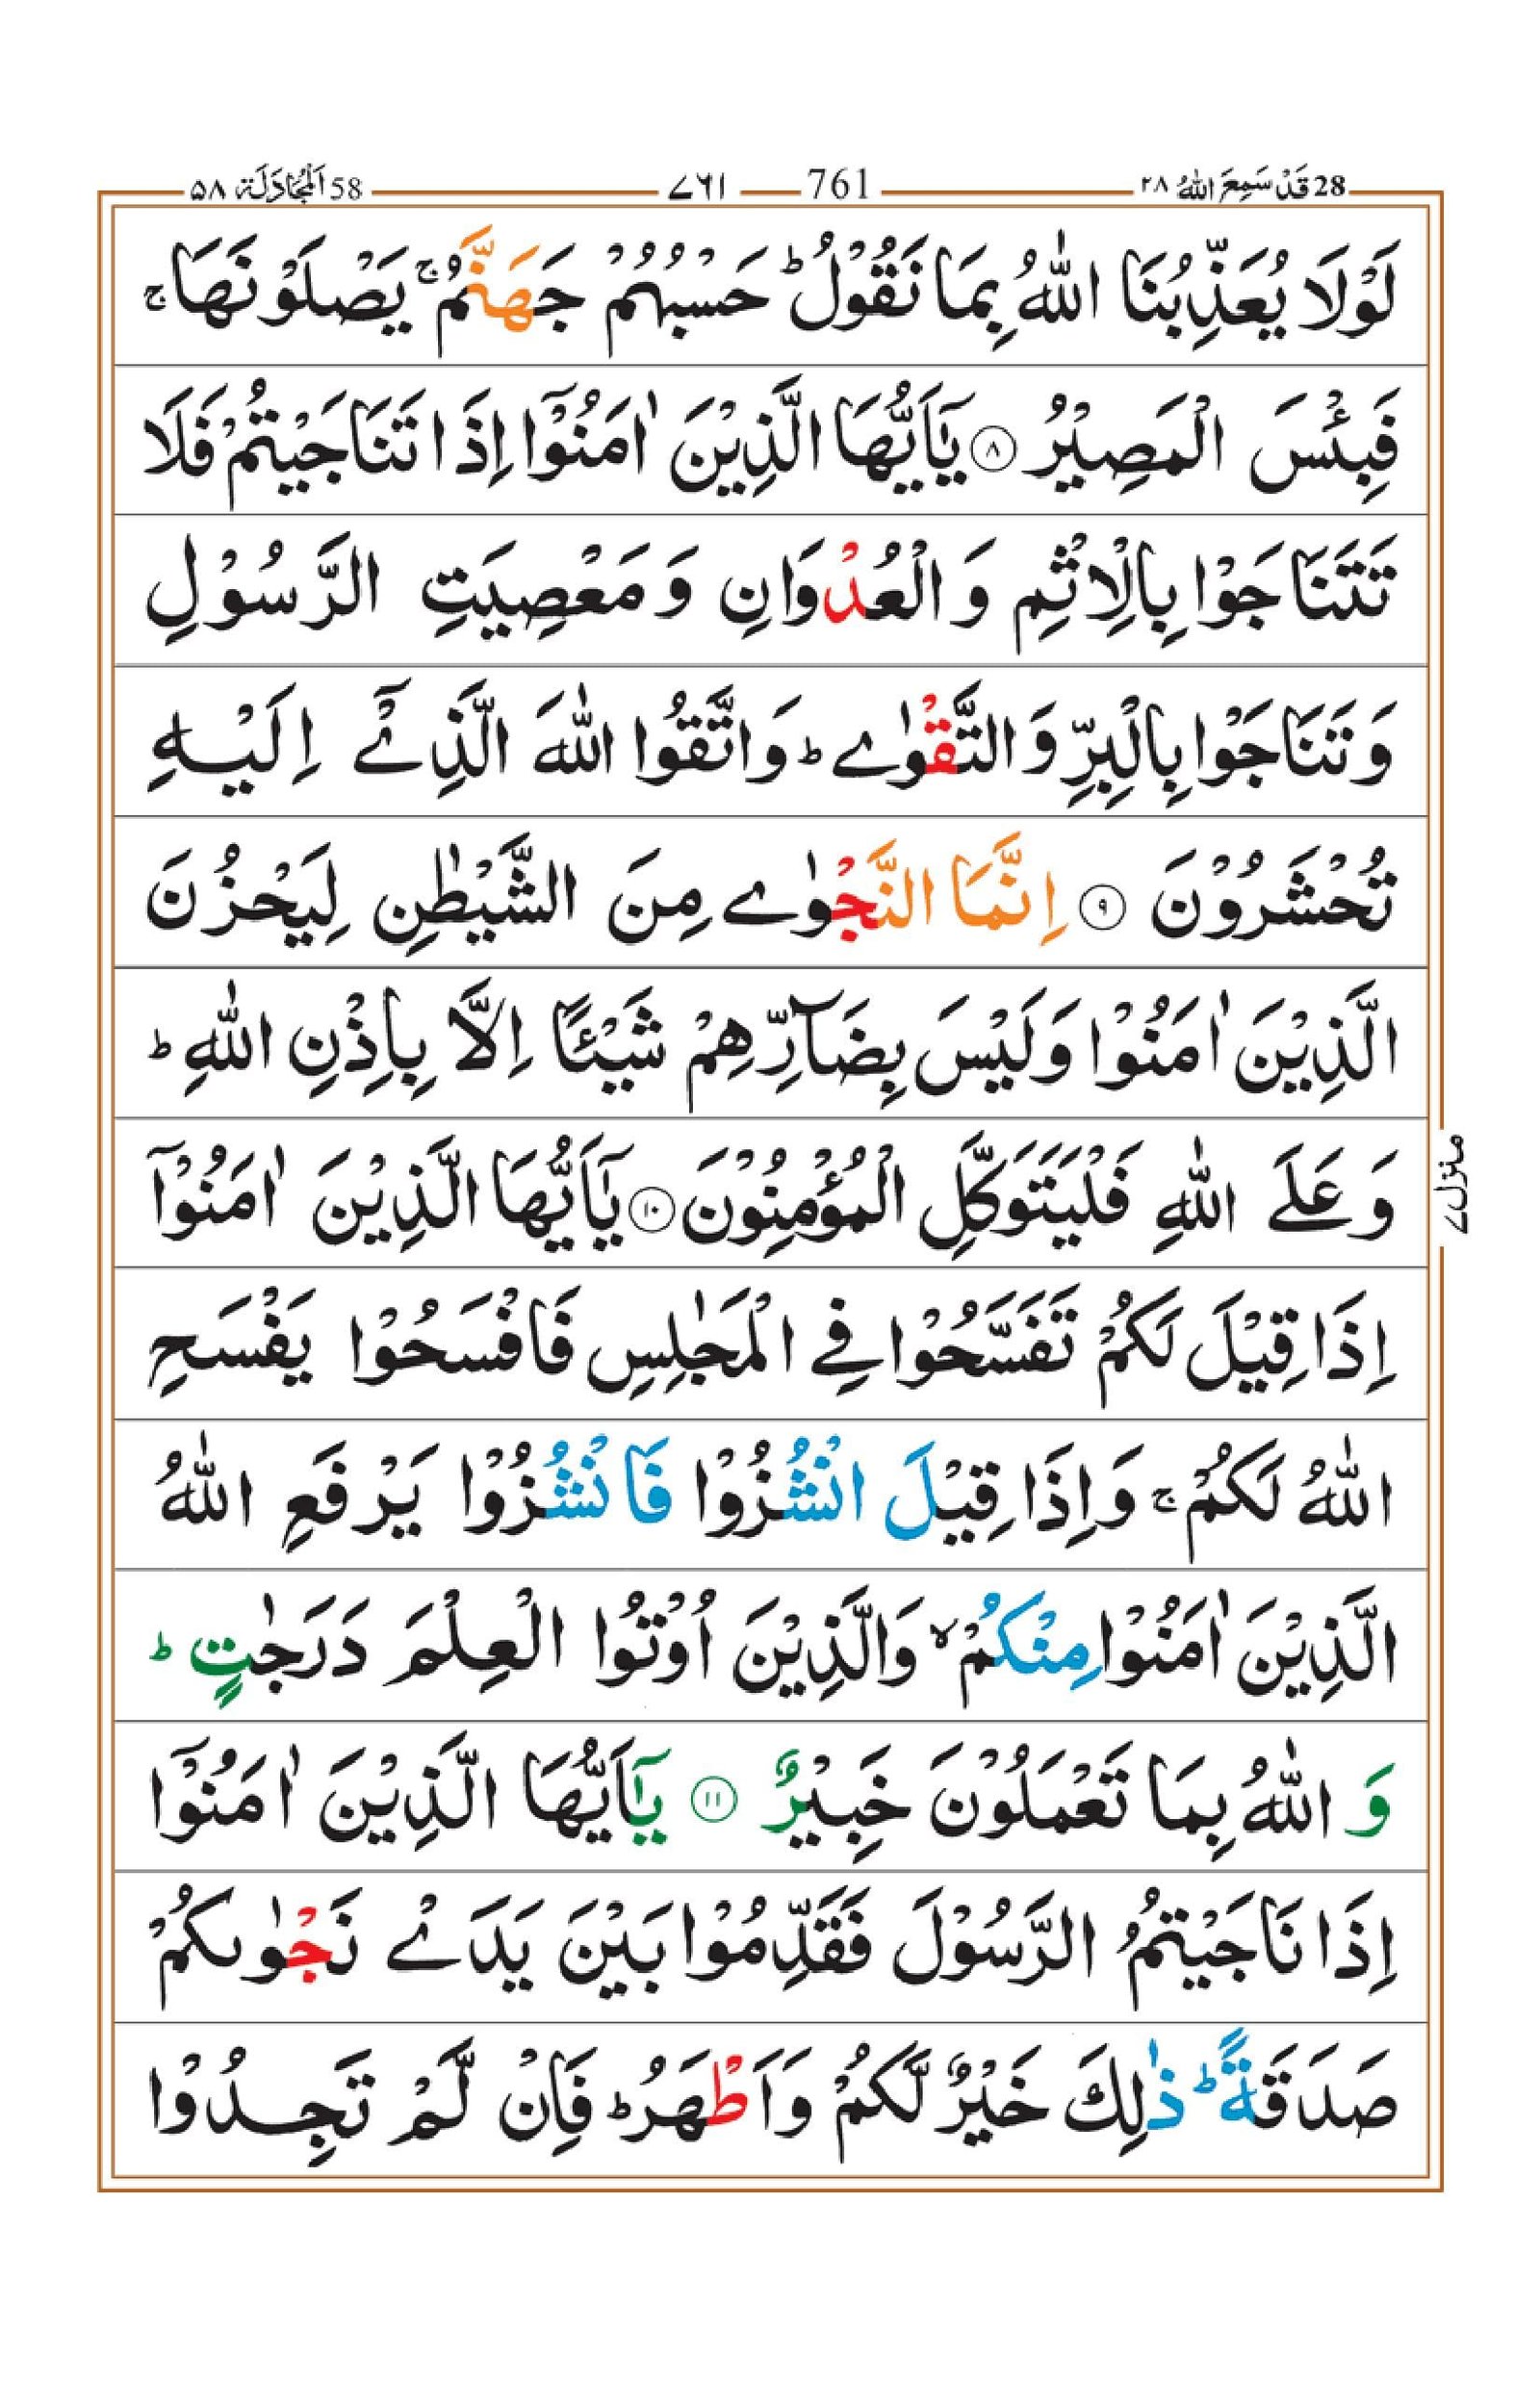 28 قَدْ سَمِعَ اللّٰهُ ٢٨ 761 ٧٦١ 58 اَلْمُجَادَلَة ٥٨
لَوْلَا يُعَذِّبُنَا اللّٰهُ بِمَا نَقُوْلُ ؕ حَسْبُهُمْ جَهَنَّمُ ۚ يَصْلَوْنَهَا ۚ
فَبِئْسَ الْمَصِيْرُ ٨ يٰۤاَيُّهَا الَّذِيْنَ اٰمَنُوْۤا اِذَا تَنَاجَيْتُمْ فَلَا
تَتَنَاجَوْا بِالْاِثْمِ وَ الْعُدْوَانِ وَ مَعْصِيَتِ الرَّسُوْلِ
وَ تَنَاجَوْا بِالْبِرِّ وَ التَّقْوٰے ؕ وَ اتَّقُوا اللّٰهَ الَّذِےْۤ اِلَيْهِ
تُحْشَرُوْنَ ٩ اِنَّمَا النَّجْوٰے مِنَ الشَّيْطٰنِ لِيَحْزُنَ
الَّذِيْنَ اٰمَنُوْا وَ لَيْسَ بِضَآرِّهِمْ شَيْـًٔا اِلَّا بِاِذْنِ اللّٰهِ ؕ
وَ عَلَے اللّٰهِ فَلْيَتَوَكَّلِ الْمُؤْمِنُوْنَ ١٠ يٰۤاَيُّهَا الَّذِيْنَ اٰمَنُوْۤا
اِذَا قِيْلَ لَكُمْ تَفَسَّحُوْا فِے الْمَجٰلِسِ فَافْسَحُوْا يَفْسَحِ
اللّٰهُ لَكُمْ ۚ وَ اِذَا قِيْلَ انْشُزُوْا فَانْشُزُوْا يَرْفَعِ اللّٰهُ
الَّذِيْنَ اٰمَنُوْا مِنْكُمْ ۙ وَ الَّذِيْنَ اُوْتُوا الْعِلْمَ دَرَجٰتٍ ؕ
وَ اللّٰهُ بِمَا تَعْمَلُوْنَ خَبِيْرٌ ١١ يٰۤاَيُّهَا الَّذِيْنَ اٰمَنُوْۤا
اِذَا نَاجَيْتُمُ الرَّسُوْلَ فَقَدِّمُوْا بَيْنَ يَدَےْ نَجْوٰىكُمْ
صَدَقَةً ؕ ذٰلِكَ خَيْرٌ لَّكُمْ وَ اَطْهَرُ ؕ فَاِنْ لَّمْ تَجِدُوْا
منزل ٧